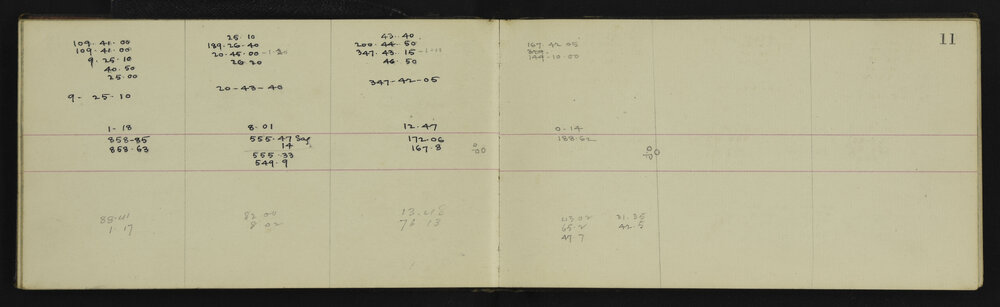 11
109. 41. 00
109. 41. 00
9. 25. 10
40. 50
25. 00
9 - 25 - 10
1 - 18
858-85
858. 63
88.41
1. 17
25. 10
189. 26. 40
20. 45. 00
26. 20
20 - 43 - 40
8. 01
555. 47 Sag
14
555. 33
549. 9
82 00
8. 02
43. 40.
200. 44. 50
347. 43. 15
46. 50
347 - 42 - 05
12. 47
172.06
167. 8
13.48
76 13
167. 42 05
149-10-00
0 - 14
188.62
43.02 21.35
65.2 42.5
47.7